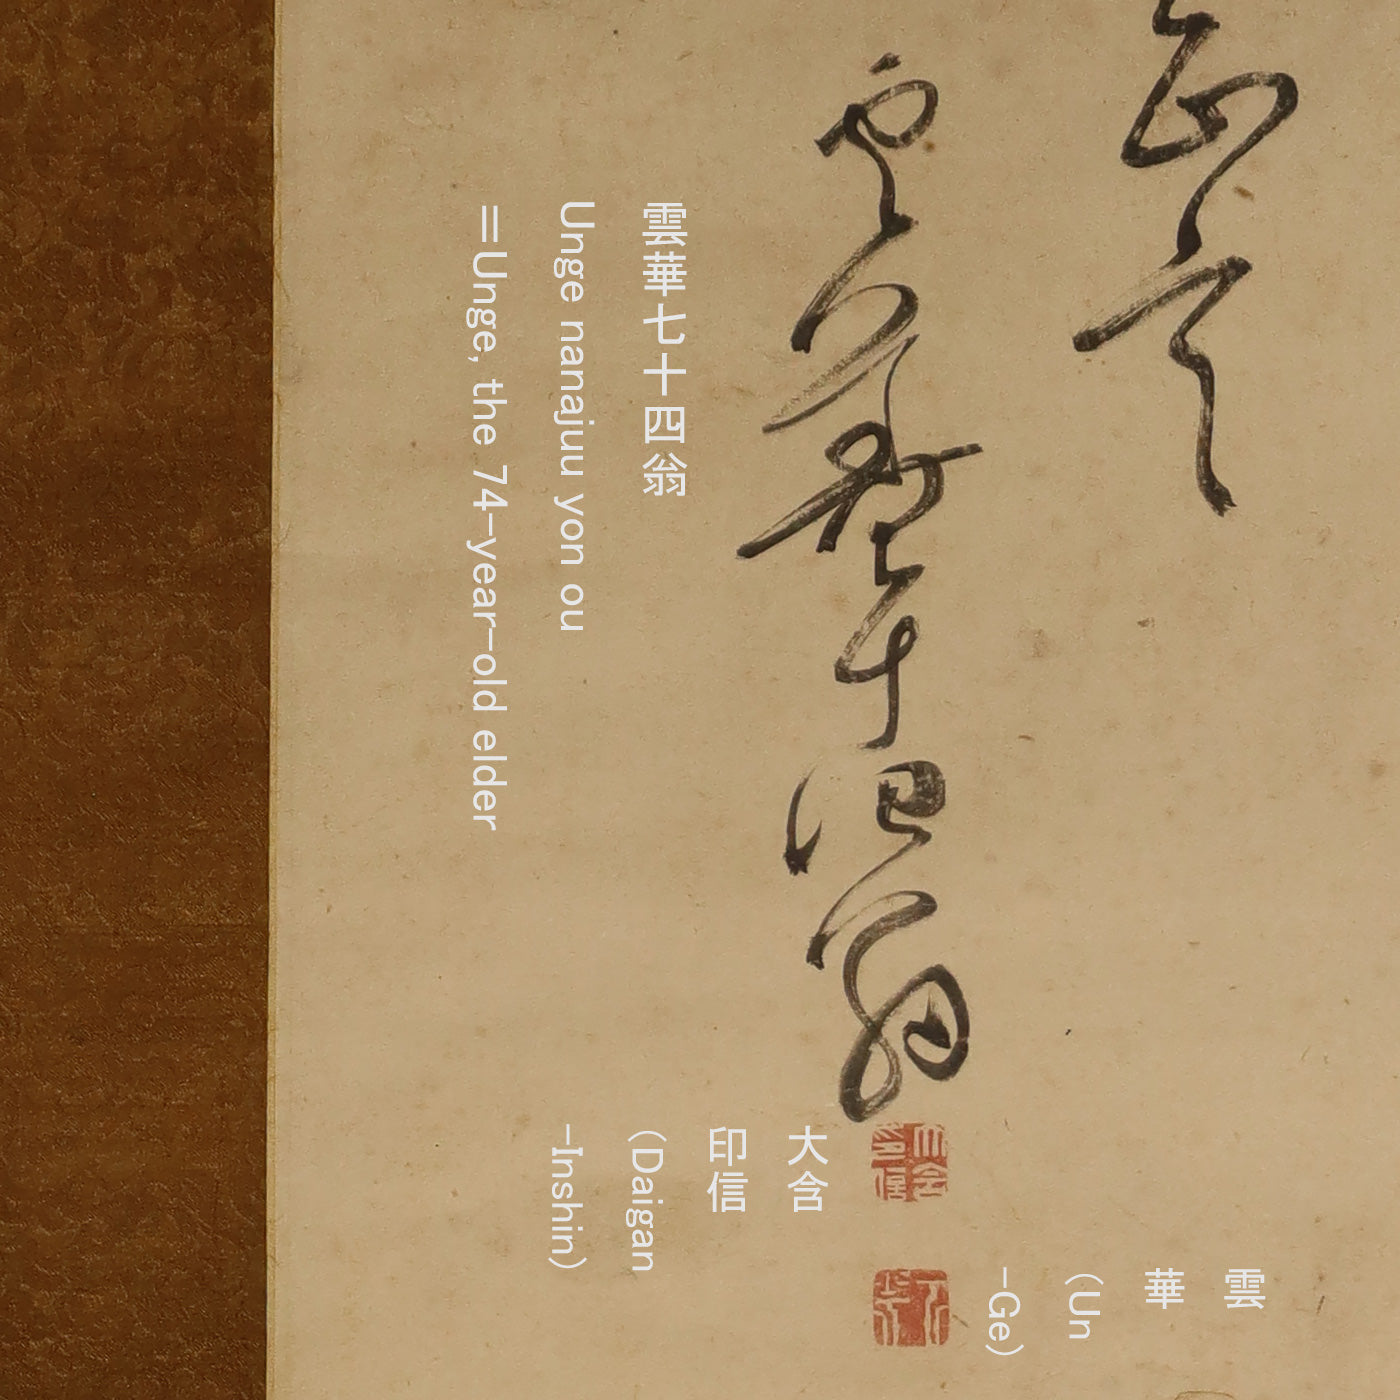 雲華七十四翁
雲華七十四翁
Unge nanajuu yon ou
=Unge, the 74-year-old elder
大含
印信
大含
印信
(Daigan
-Inshin)
雲
華
(Un
-Ge)